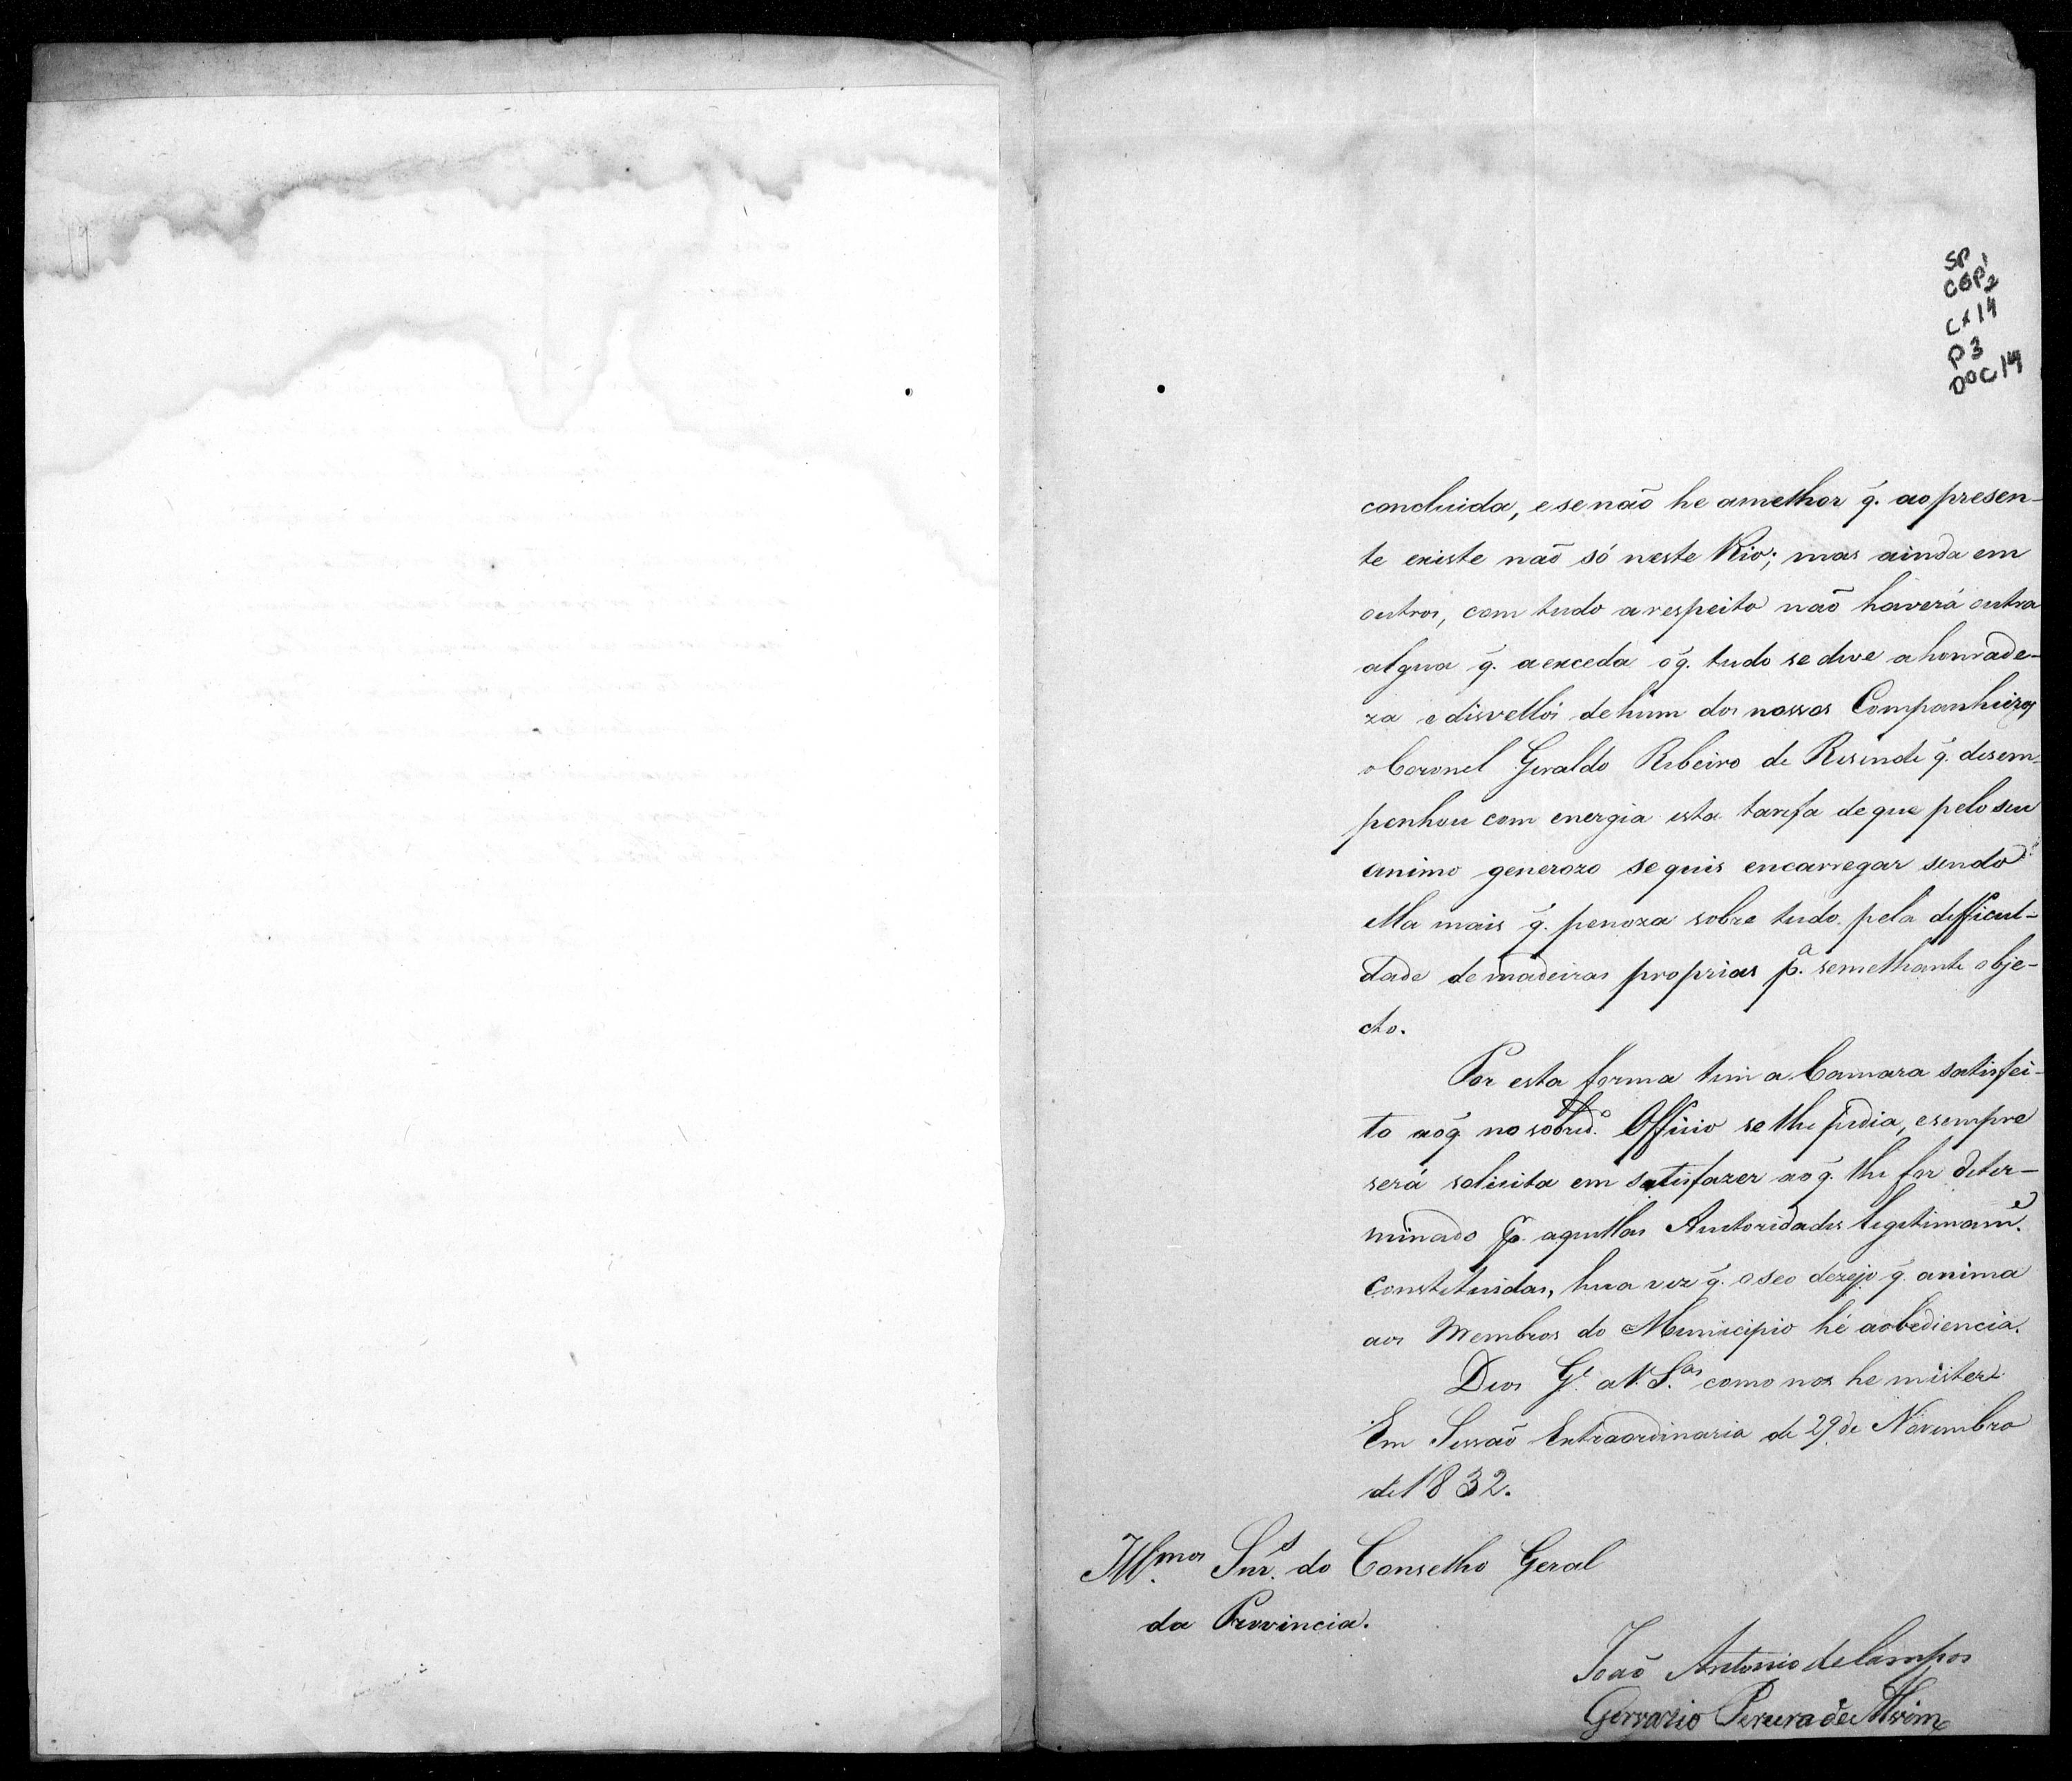 SP
CGP1/2
CX14
P3
DOC14
concluida, e se não he amelhor q̃. ao presen-
te existe não só neste Rio; mas ainda em
outros, com tudo a respeito não haverá outra
algua q̃. a exceda o q̃. tudo se deve a honrade-
za e disvellos de hum dos nossos Companheiros
o Coronel Geraldo Ribeiro de Resende q̃. desem-
penhou com energia esta tarefa de que pelo seu
animo generozo se quis encarregar sendo
ella mais q̃. penoza sobre tudo pela difficul-
dade de madeiras proprias p.ª semelhante obje-
cto.
Por esta forma tem a Camara satisfei-
to ao q̃ no sobred.º Officio se lhe pedia, e sempre
será solicita em satisfazer ao q̃. lhe for deter-
minado p.r aquellas Auctoridades legitimam.e
constituidas, hua vez q̃. o seo dezejo q̃. anima
aos Membros do Municipio hé a obediencia.
Deos G.e a V. S.as como nos he mister
Em Sessão Extraordinaria de 29 de Novembro
de 1832.
Ill.mos Snr.s do Conselho Geral
da Provincia.
João Antonio de Campos
Gervazio Pereira de Alvim